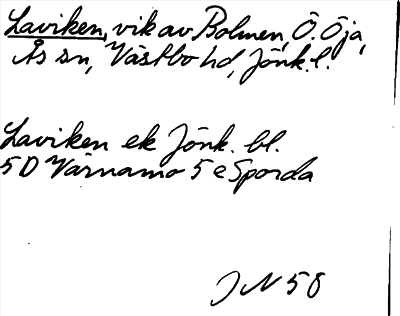 Laviken, vik av Bolmen, Ö. Öja,
Ås sn, Västbo hd, Jönk.l.
Laviken ek Jönk. bl.
5D Värnamo 5 e Sporda
JN 58